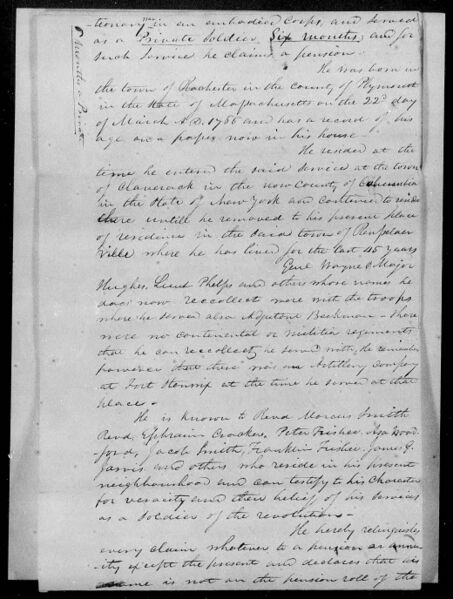 -tionary war in an embodied Corps, and served
as a Private Soldier, Six months, and for
such Service he claims a pension.
6 months a Private
He was born in
the town of Rochester in the county of Plymouth
in the State of Massachusetts on the 22d day
of March A.D. 1766 and has a record of his
age on a paper now in his house.
He resided at the
time he entered the said service at the town
of Claverack in the now County of Columbia
in the State of New York and continued to reside
there untill he removed to his present place
of residence in the said town of Renselaer
Ville where he has lived for the last 45 years
Genl Wayne, Major
Hughes, Lieut Phelps and others whose names he
does now reccollect were with the troops
where he served also Adjutone Beekman - There
were no continental or militia regiments
that he can reccollect he served with, he remembers
however that there was an Artillery company
at Fort Stanwix at the time he served at that
place.-
He is known to Revd Marcus Smith
Revd Ephraim Crocker, Peter Frisbee, Asa Wood
-ford, Jacob Smith, Franklin Frisbee, James G.
Jarvis and others who reside in his present
neighbourhood and can testify to his character
for veracity and their belief of his services
as a soldier of the revolution.-
He hereby relinquishes
every claim whatever to a pension or annu
-ity except the present and declares that his
name is not on the pension roll of the